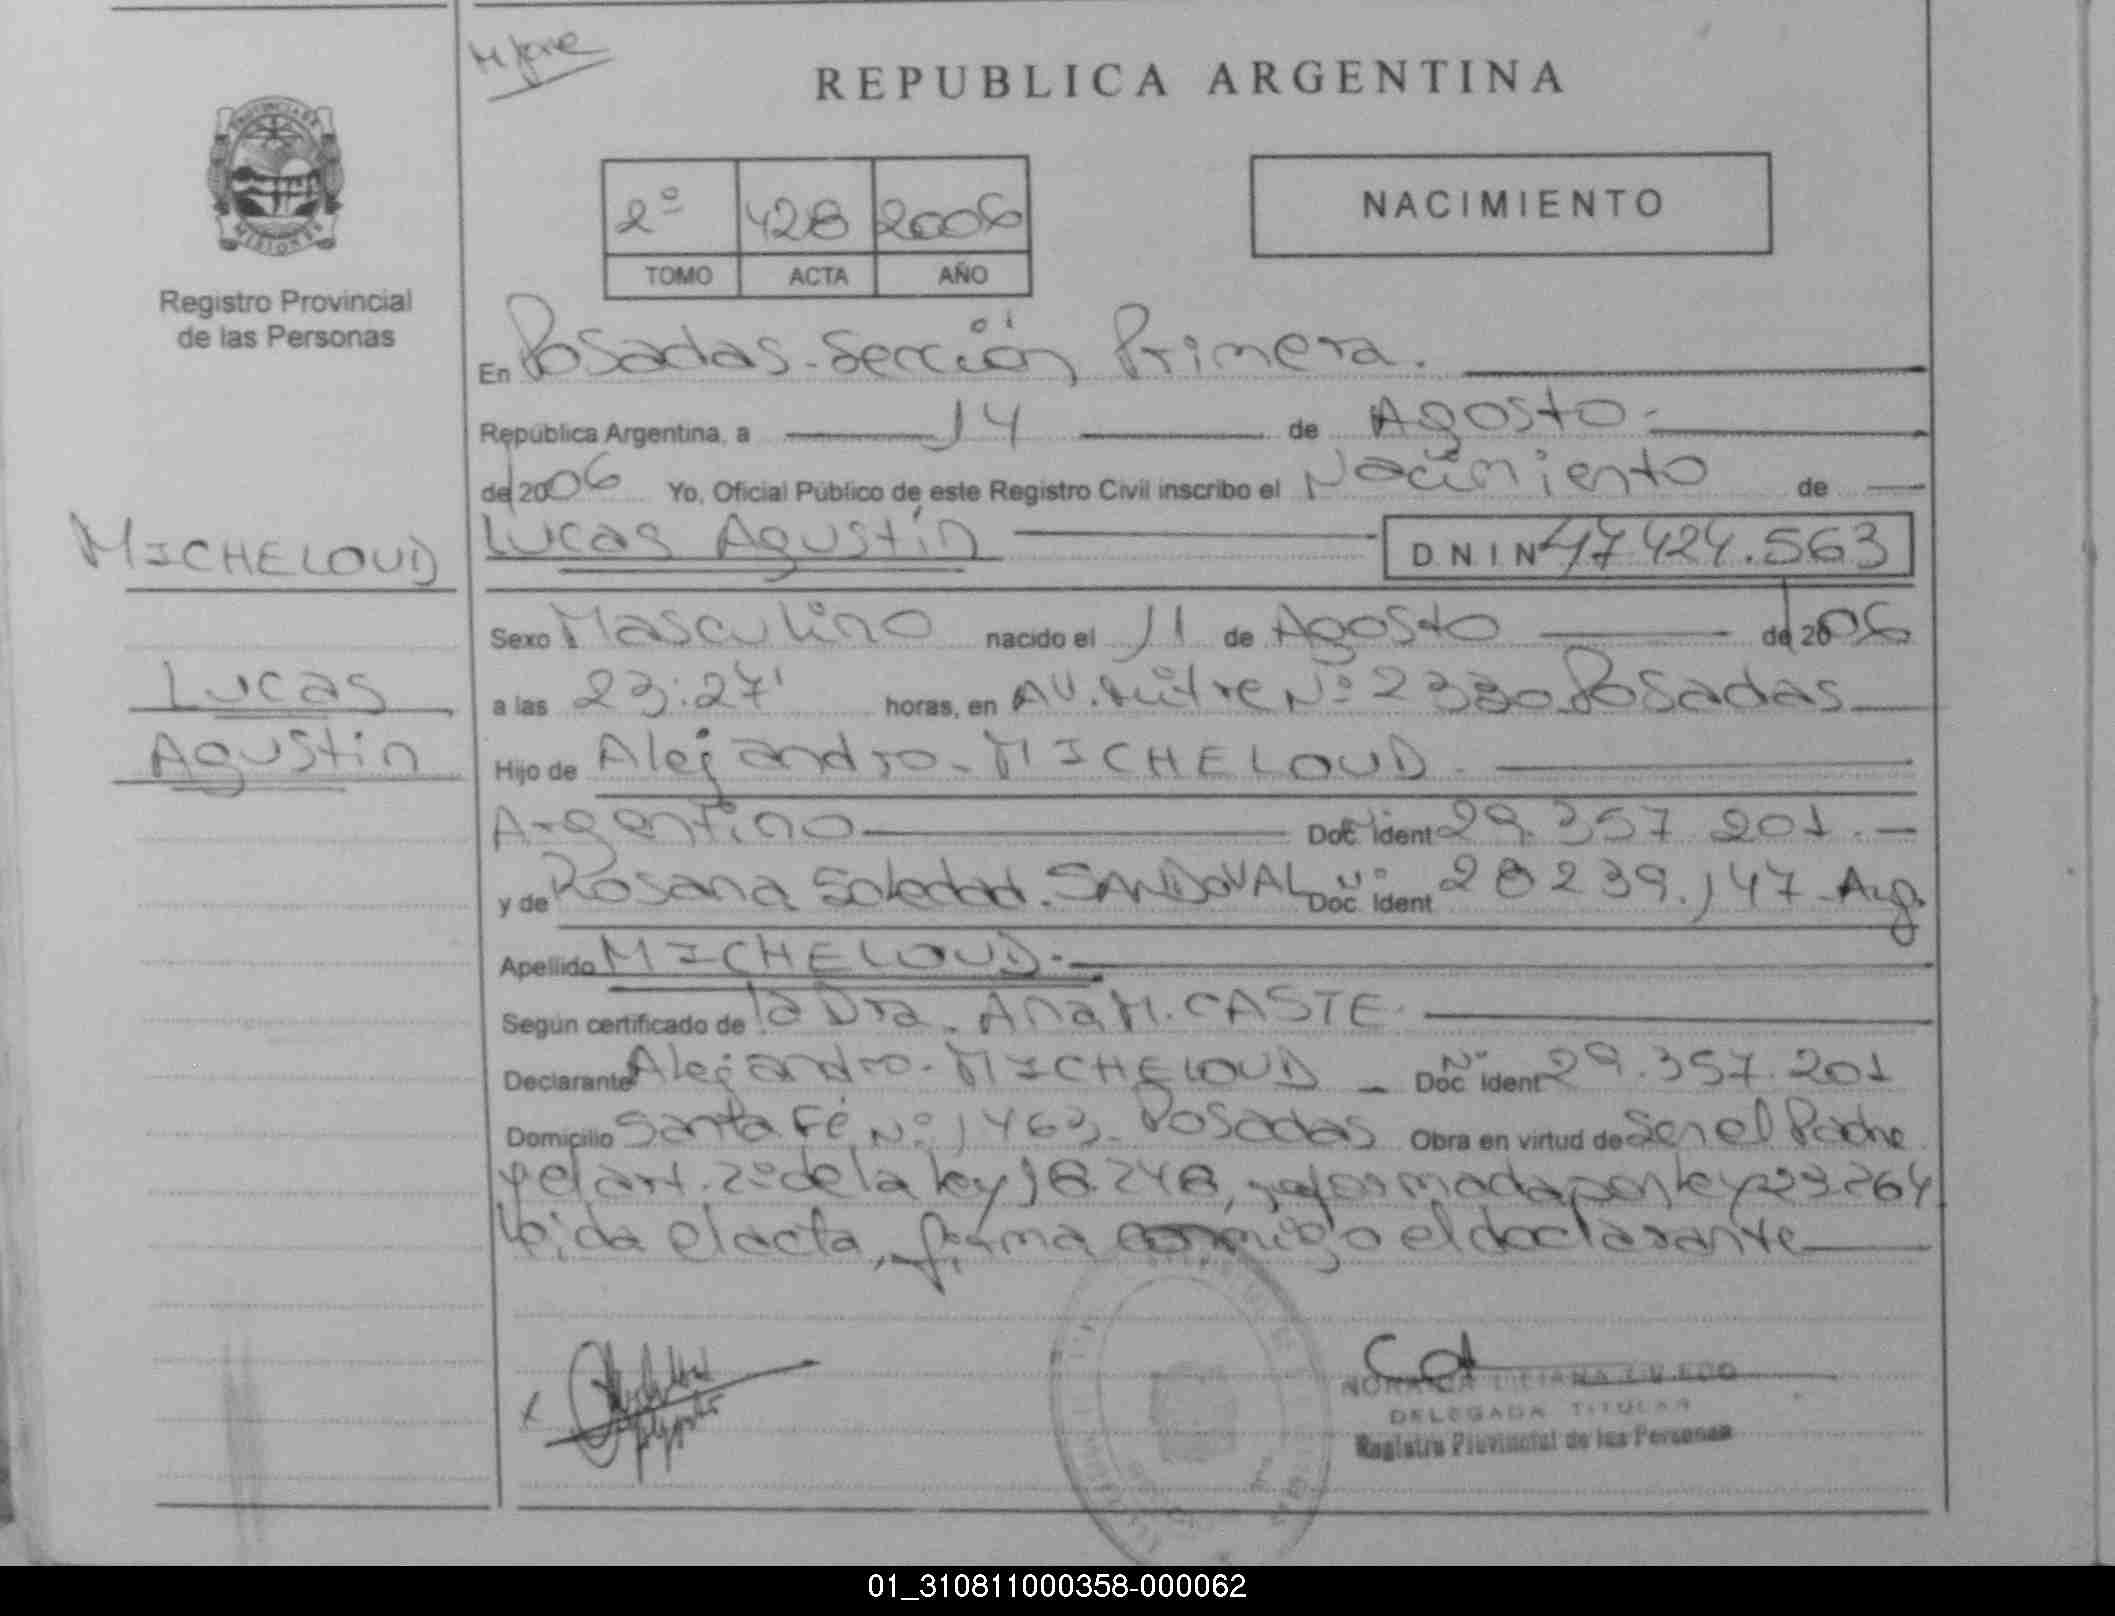 REPUBLICA ARGENTINA
PROVINCIA DE
MISIONES
Registro Provincial
de las Personas
2º 428 2006
TOMO ACTA AÑO
NACIMIENTO
En Posadas-Sección Primera.
República Argentina, a 14 de Agosto-
del 2006 Yo, Oficial Público de este Registro Civil inscribo el Nacimiento de
MICHELOUD
Lucas Agustín
D N I Nº 47 424.563
Sexo Masculino nacido el 11 de Agosto del 2006
Lucas
a las 23:27' horas, en AV. Mitre Nº 2330 Posadas
Agustín
Hijo de Alejandro-MICHELOUD.
Argentino Doc. Ident Nº 29.357 201.
y de Rosana Soledad. SANDOVAL Doc. Ident Nº 28 239.147 Arg.
Apellido MICHELOUD.
Según certificado de la Dra. Ana M. CASTE.
Declarante Alejandro-MICHELOUD Doc. Ident Nº 29.357.201
Domicilio Santa Fé Nº 1463. Posadas Obra en virtud de ser el Padre
y el art. 2º de la ley 18.248, reformada por ley 23.264
leida el acta, firma conmigo el declarante
LILIANA
DELEGADA TITULAR
Registro Provincial de las Personas
01_310811000358-000062